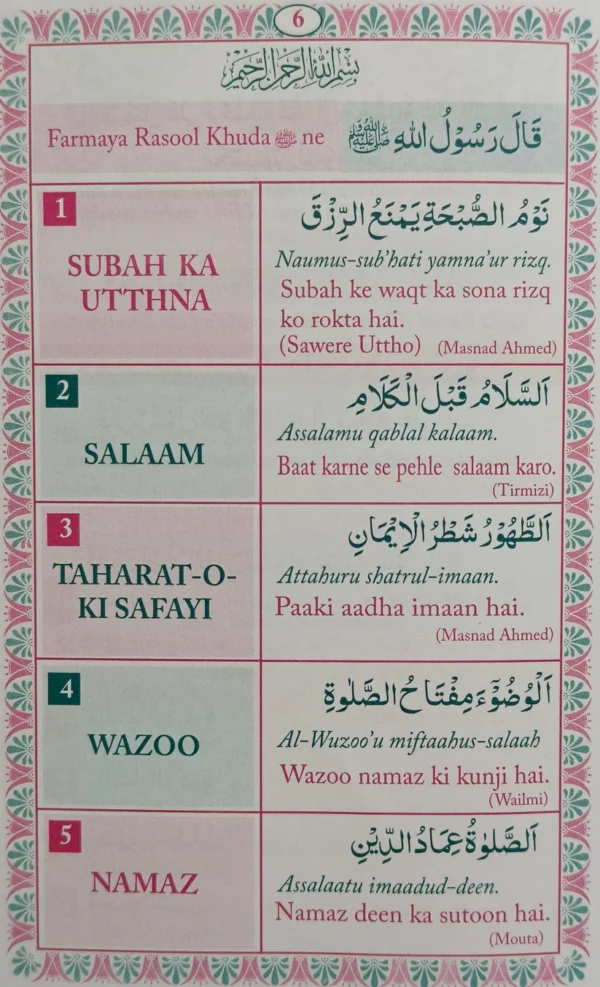 6
بِسْمِ اللهِ الرَّحْمٰنِ الرَّحِيْمِ
Farmaya Rasool Khuda ﷺ ne
قَالَ رَسُوْلُ اللهِ ﷺ
1
SUBAH KA
UTTHNA
نَوْمُ الصُّبْحَةِ يَمْنَعُ الرِّزْقَ
Naumus-sub'hati yamna'ur rizq.
Subah ke waqt ka sona rizq
ko rokta hai.
(Sawere Uttho) (Masnad Ahmed)
2
SALAAM
اَلسَّلَامُ قَبْلَ الْكَلَامِ
Assalamu qablal kalaam.
Baat karne se pehle salaam karo.
(Tirmizi)
3
TAHARAT-O-
KI SAFAYI
اَلطَّهُوْرُ شَطْرُ الْاِيْمَانِ
Attahuru shatrul-imaan.
Paaki aadha imaan hai.
(Masnad Ahmed)
4
WAZOO
اَلْوُضُوْٓءَ مِفْتَاحُ الصَّلٰوةِ
Al-Wuzoo'u miftaahus-salaah
Wazoo namaz ki kunji hai.
(Wailmi)
5
NAMAZ
اَلصَّلٰوةُ عِمَادُ الدِّيْنِ
Assalaatu imaadud-deen.
Namaz deen ka sutoon hai.
(Mouta)